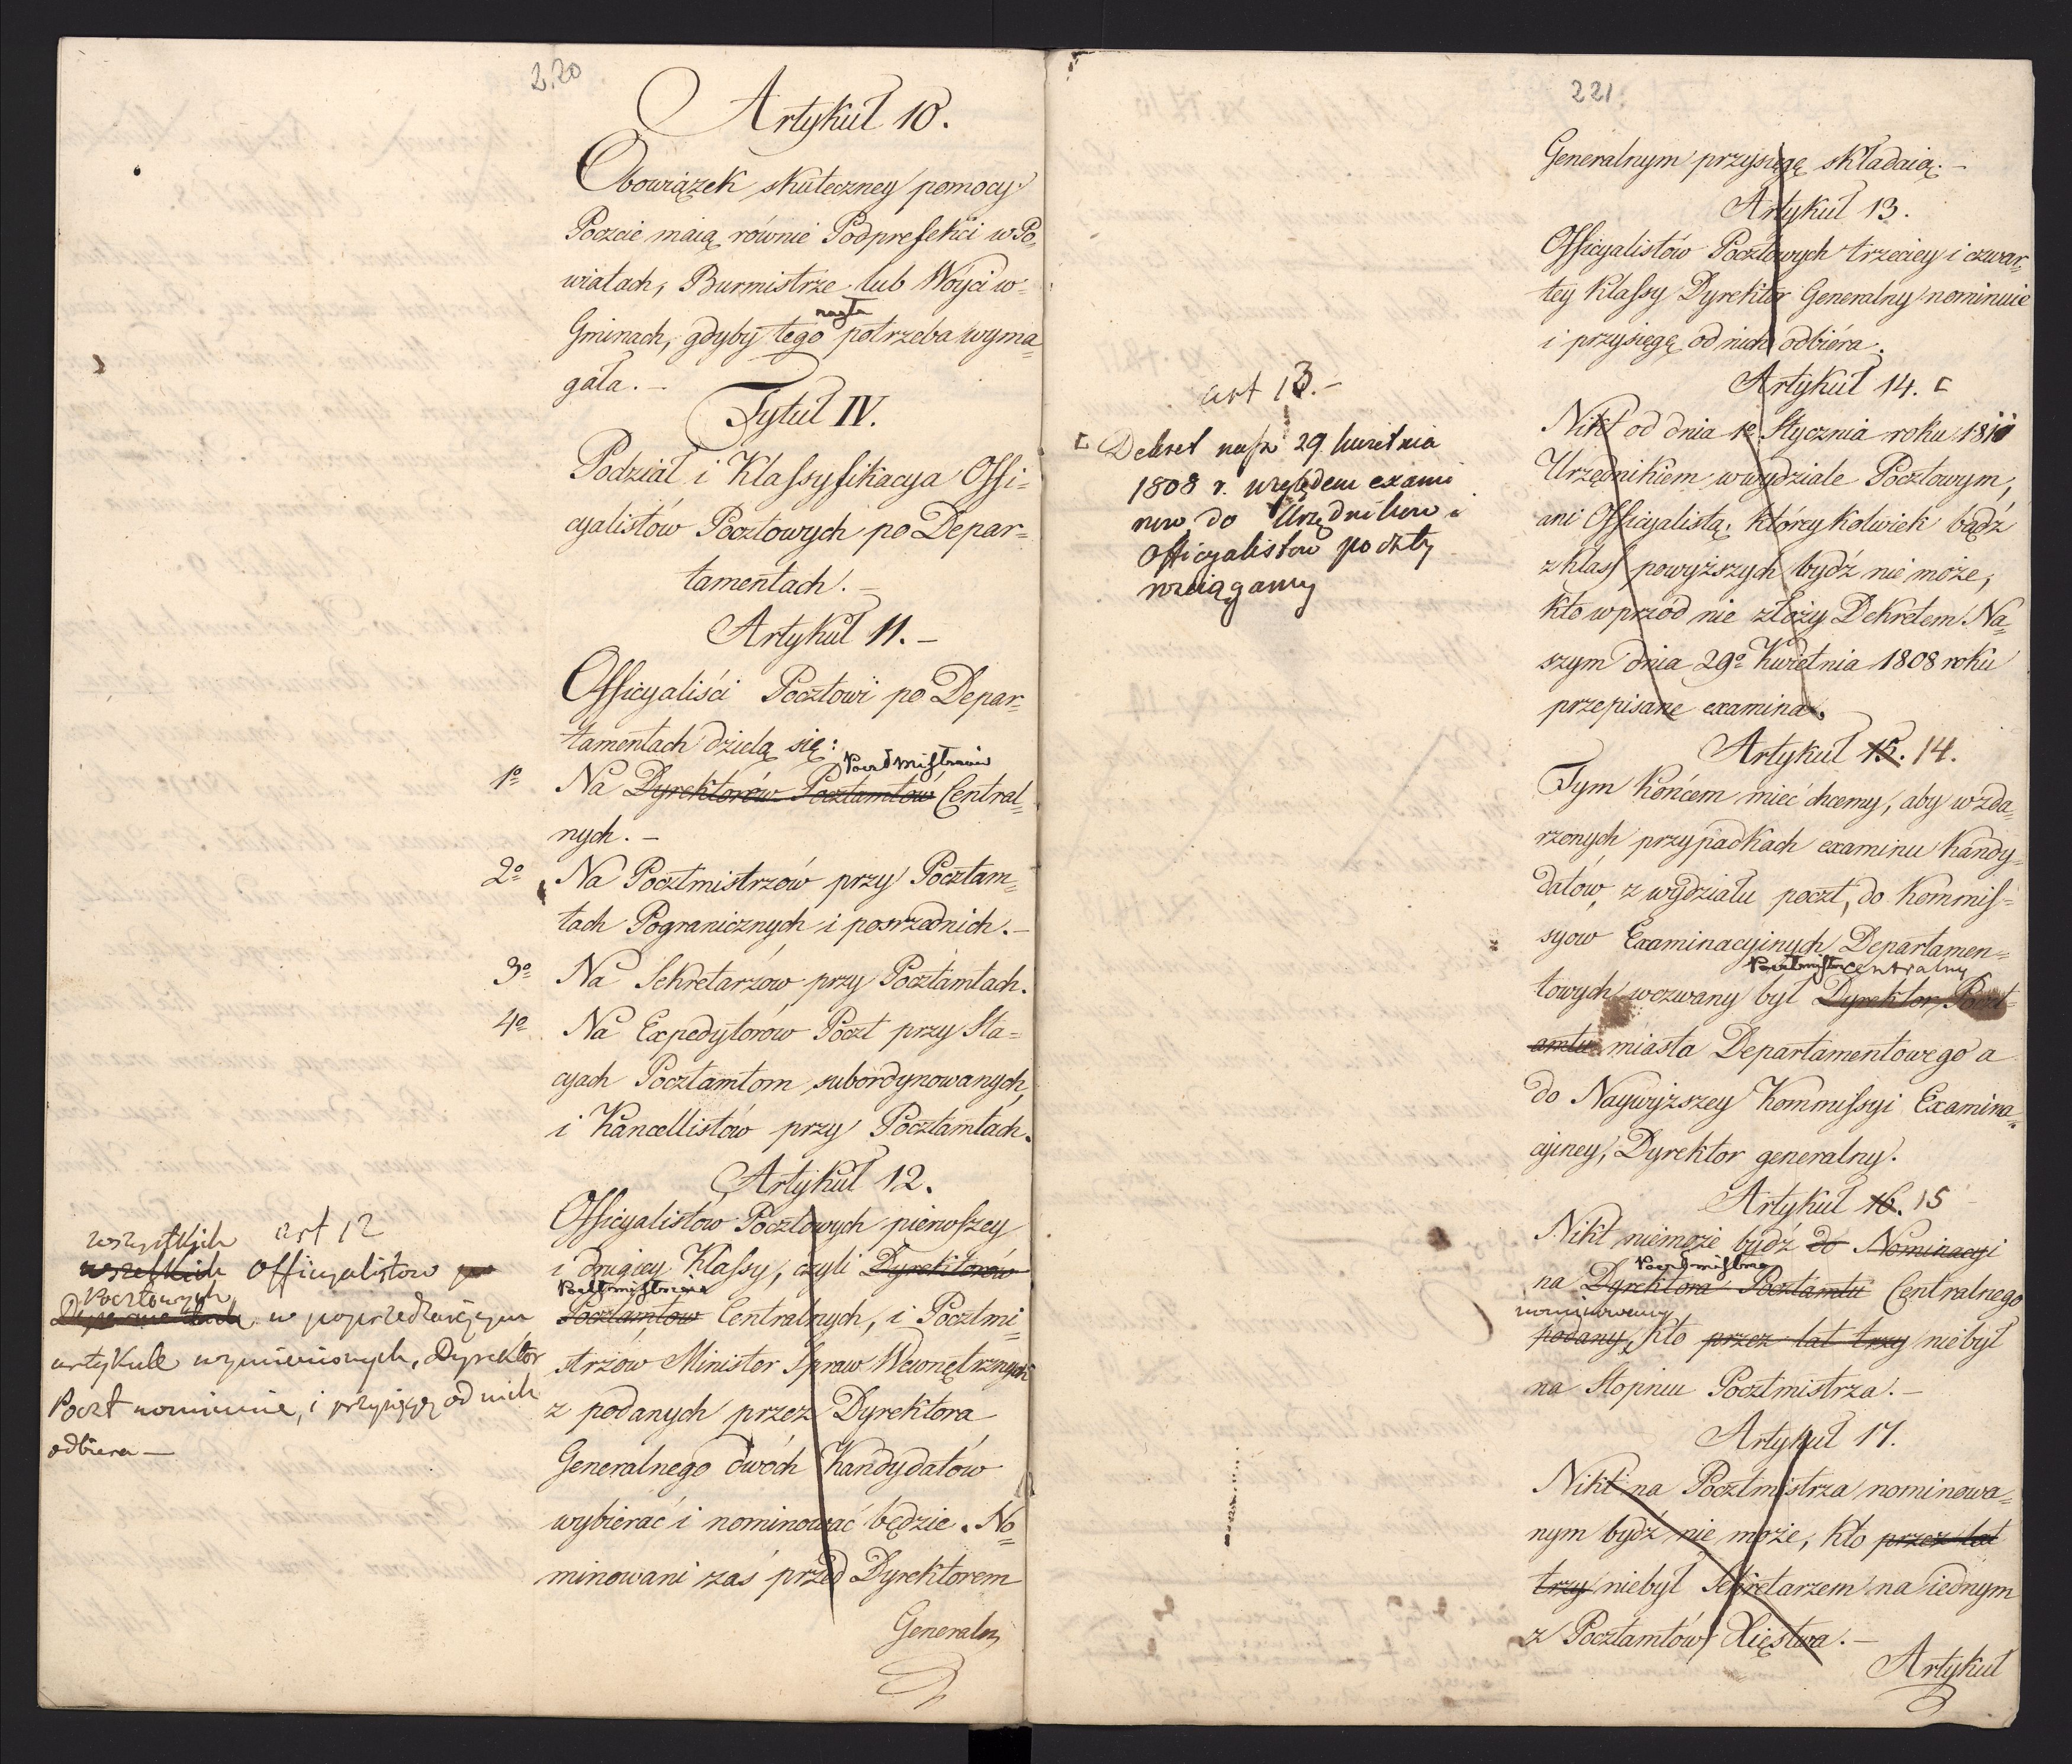 220
Artykuł 10.
Obowiązek skuteczney pomocy
Poczcie maią równie Podprefekci w Po=
wiatach, Burmistrze lub Wóyci w
nagła
Gminach, gdyby tego potrzeba wyma=
gała. –
Tytuł IV.
Podział i Klassyfikacya Offi=
cyalistów Pocztowych po Depar=
tamentach. –
Artykuł 11. –
Officyaliści Pocztowi po Depar=
tamentach dzielą się:
Pocztmistrzów
1o Na Dyrektorów Pocztamtów Central=
nych. –
2o Na Pocztmistrzów przy Pocztam=
tach Pogranicznych i posrzednich. –
3o Na Sekretarzów przy Pocztamtach.
4o Na Expedytorów Poczt przy Sta=
cyach Pocztamtom subordynowanych,
i Kancellistów przy Pocztamtach.
Artykuł 12.
Officyalistów Pocztowych pierwszey
i drugiey Klassy, czyli Dyrektorów
Pocztmistrzów
Pocztamtów Centralnych, i Pocztmi=
strzów Minister Spraw Wewnętrznych
z podanych przez Dyrektora
Generalnego dwóch Kandydatów
wybierać i nominować będzie. No=
minowani zaś przed Dyrektorem
Generalny
art 12
wszystkich
wszelkich Officyalistow
Pocztowych
w poprzedzaiącym
artykule wymienionych, Dyrektor
Poczt nominuie, i przysięgę od nich
odbiera –
221.
Generalnym przysięgę składaią. –
Artykuł 13.
Officyalistów Pocztowych trzeciey i czwar=
tey Klassy Dyrektor Generalny nominuie
i przysięgę od nich odbiéra.
Artykuł 14. [
Nikt od dnia 1o Stycznia roku 1810
Urzędnikiem w wydziale Pocztowym,
ani Officyalistą, któreykolwiek bądź
z klass powyższych bydź nie może,
kto wprzód nie złoży Dekretem Na=
szym dnia 29o Kwietnia 1808 roku
przepisane examina.
Artykuł 15. 14.
Tym końcem mieć chcemy, aby w zda=
rzonych przypadkach examinu kandy=
datów, z wydziału poczt, do Kommis=
syow Examinacyinych Departamen=
Pocztmistrz centralny
towych wezwany był Dyrektor Poczt=
amtu miasta Departamentowego a
do Naywyższey Kommissyi Examina=
cyiney, Dyrektor generalny.
Artykuł 16. 15
Nikt niemoże bydź do Nominacyi
Pocztmistrza
na Dyrektora Pocztamtu Centralnego
nominowany
podany, kto przez lat trzy niebył
na Stopniu Pocztmistrza. –
Artykuł 17.
Nikt na Pocztmistrza nominowa=
nym bydź nie może, kto przez lat
trzy niebył Sekretarzem na iednym
z Pocztamtów Xięstwa. –
Artykuł
art 13. –
[ Dekret nasz 29 kwietnia
1808 r. względem exami
now do Urzędnikow i
Officyalistow poczty
rozciągamy